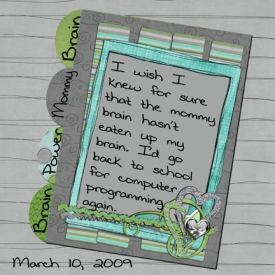 Brain Power Mommy Brain
I wish I
knew for sure
that the mommy
brain hasn't
eaten up my
brain. I'd go
back to school
for computer
programming
again.
March 10, 2009